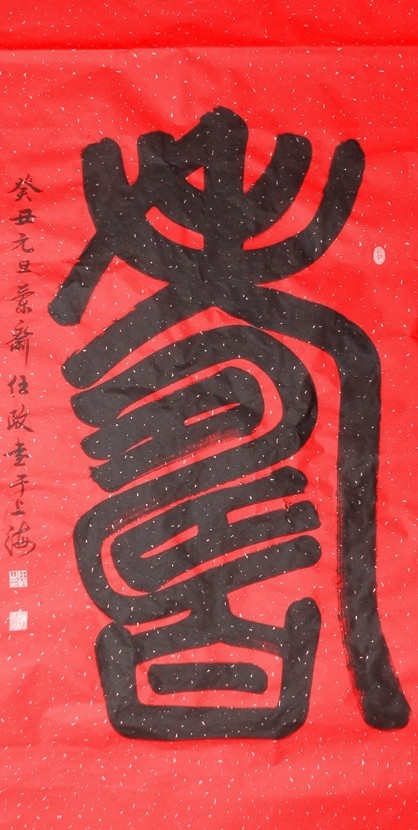 壽
癸丑元旦蘭齋任政書于上海